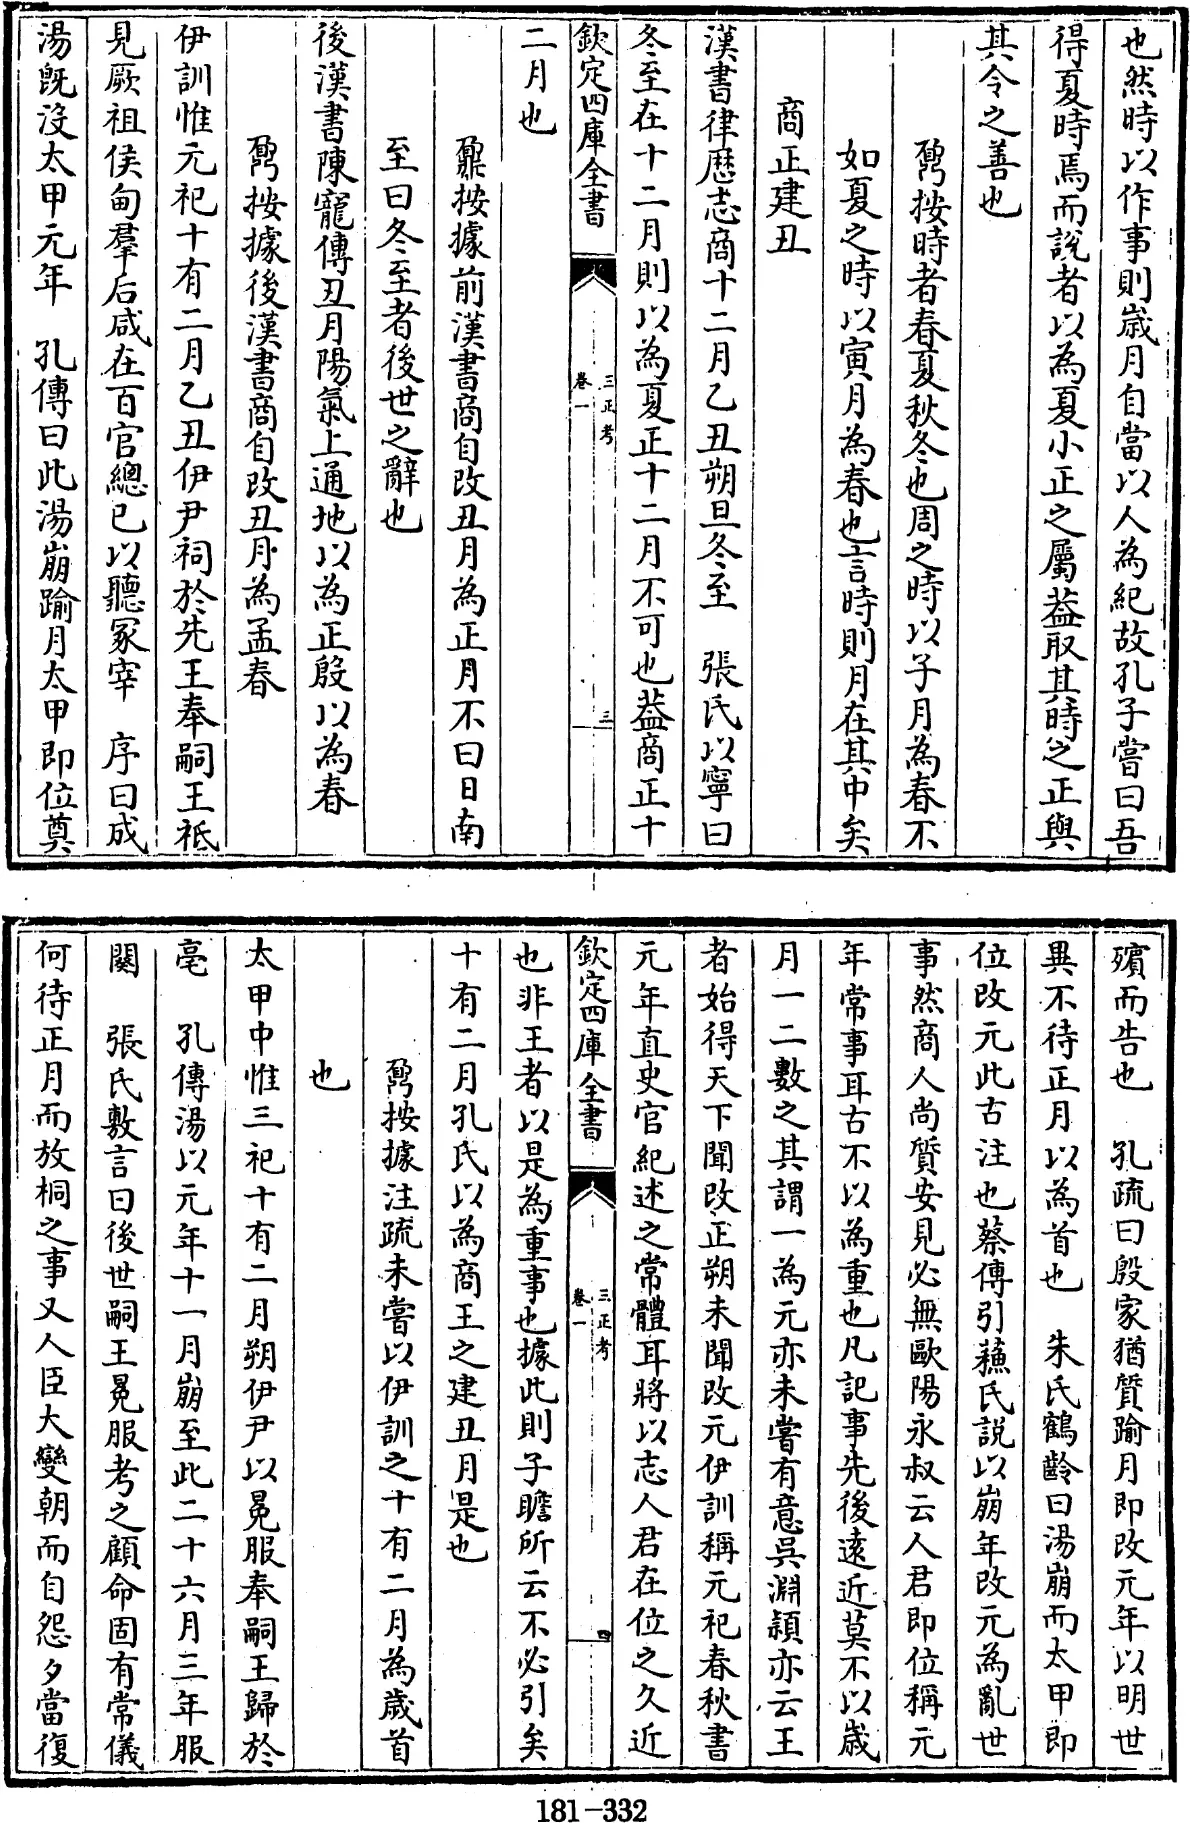 也然時以作事則歲月自當以人為紀故孔子嘗曰吾
得夏時焉而說者以為夏小正之屬葢取其時之正與
其令之善也
鼐按時者春夏秋冬也周之時以子月為春不
如夏之時以寅月為春也言時則月在其中矣
商正建丑
漢書律歷志商十二月乙丑朔旦冬至　張氏以寧曰
冬至在十二月則以為夏正十二月不可也葢商正十
欽定四庫全書
三正考
卷一
三
二月也
鼐按據前漢書商自改丑月為正月不曰日南
至曰冬至者後世之辭也
後漢書陳寵傳丑月陽氣上通地以為正殷以為春
鼐按據後漢書商自改丑月為孟春
伊訓惟元祀十有二月乙丑伊尹祠於先王奉嗣王祇
見厥祖侯甸羣后咸在百官總已以聽冢宰　序曰成
湯旣沒太甲元年　孔傳曰此湯崩踰月太甲即位奠
殯而告也　孔疏曰殷家猶質踰月即改元年以明世
異不待正月以為首也　朱氏鶴齡曰湯崩而太甲即
位改元此古注也蔡傳引蘓氏說以崩年改元為亂世
事然商人尚質安見必無歐陽永叔云人君即位稱元
年常事耳古不以為重也凡記事先後遠近莫不以歲
月一二數之其謂一為元亦未嘗有意吳淵頴亦云王
者始得天下聞改正朔未聞改元伊訓稱元祀春秋書
元年直史官紀述之常體耳將以志人君在位之久近
欽定四庫全書
三正考
卷一
四
也非王者以是為重事也據此則子瞻所云不必引矣
十有二月孔氏以為商王之建丑月是也
鼐按據注疏未嘗以伊訓之十有二月為歲首
也
太甲中惟三祀十有二月朔伊尹以冕服奉嗣王歸於
亳　孔傳湯以元年十一月崩至此二十六月三年服
闋　張氏敷言曰後世嗣王冕服考之顧命固有常儀
何待正月而放桐之事又人臣大變朝而自怨夕當復
181-332